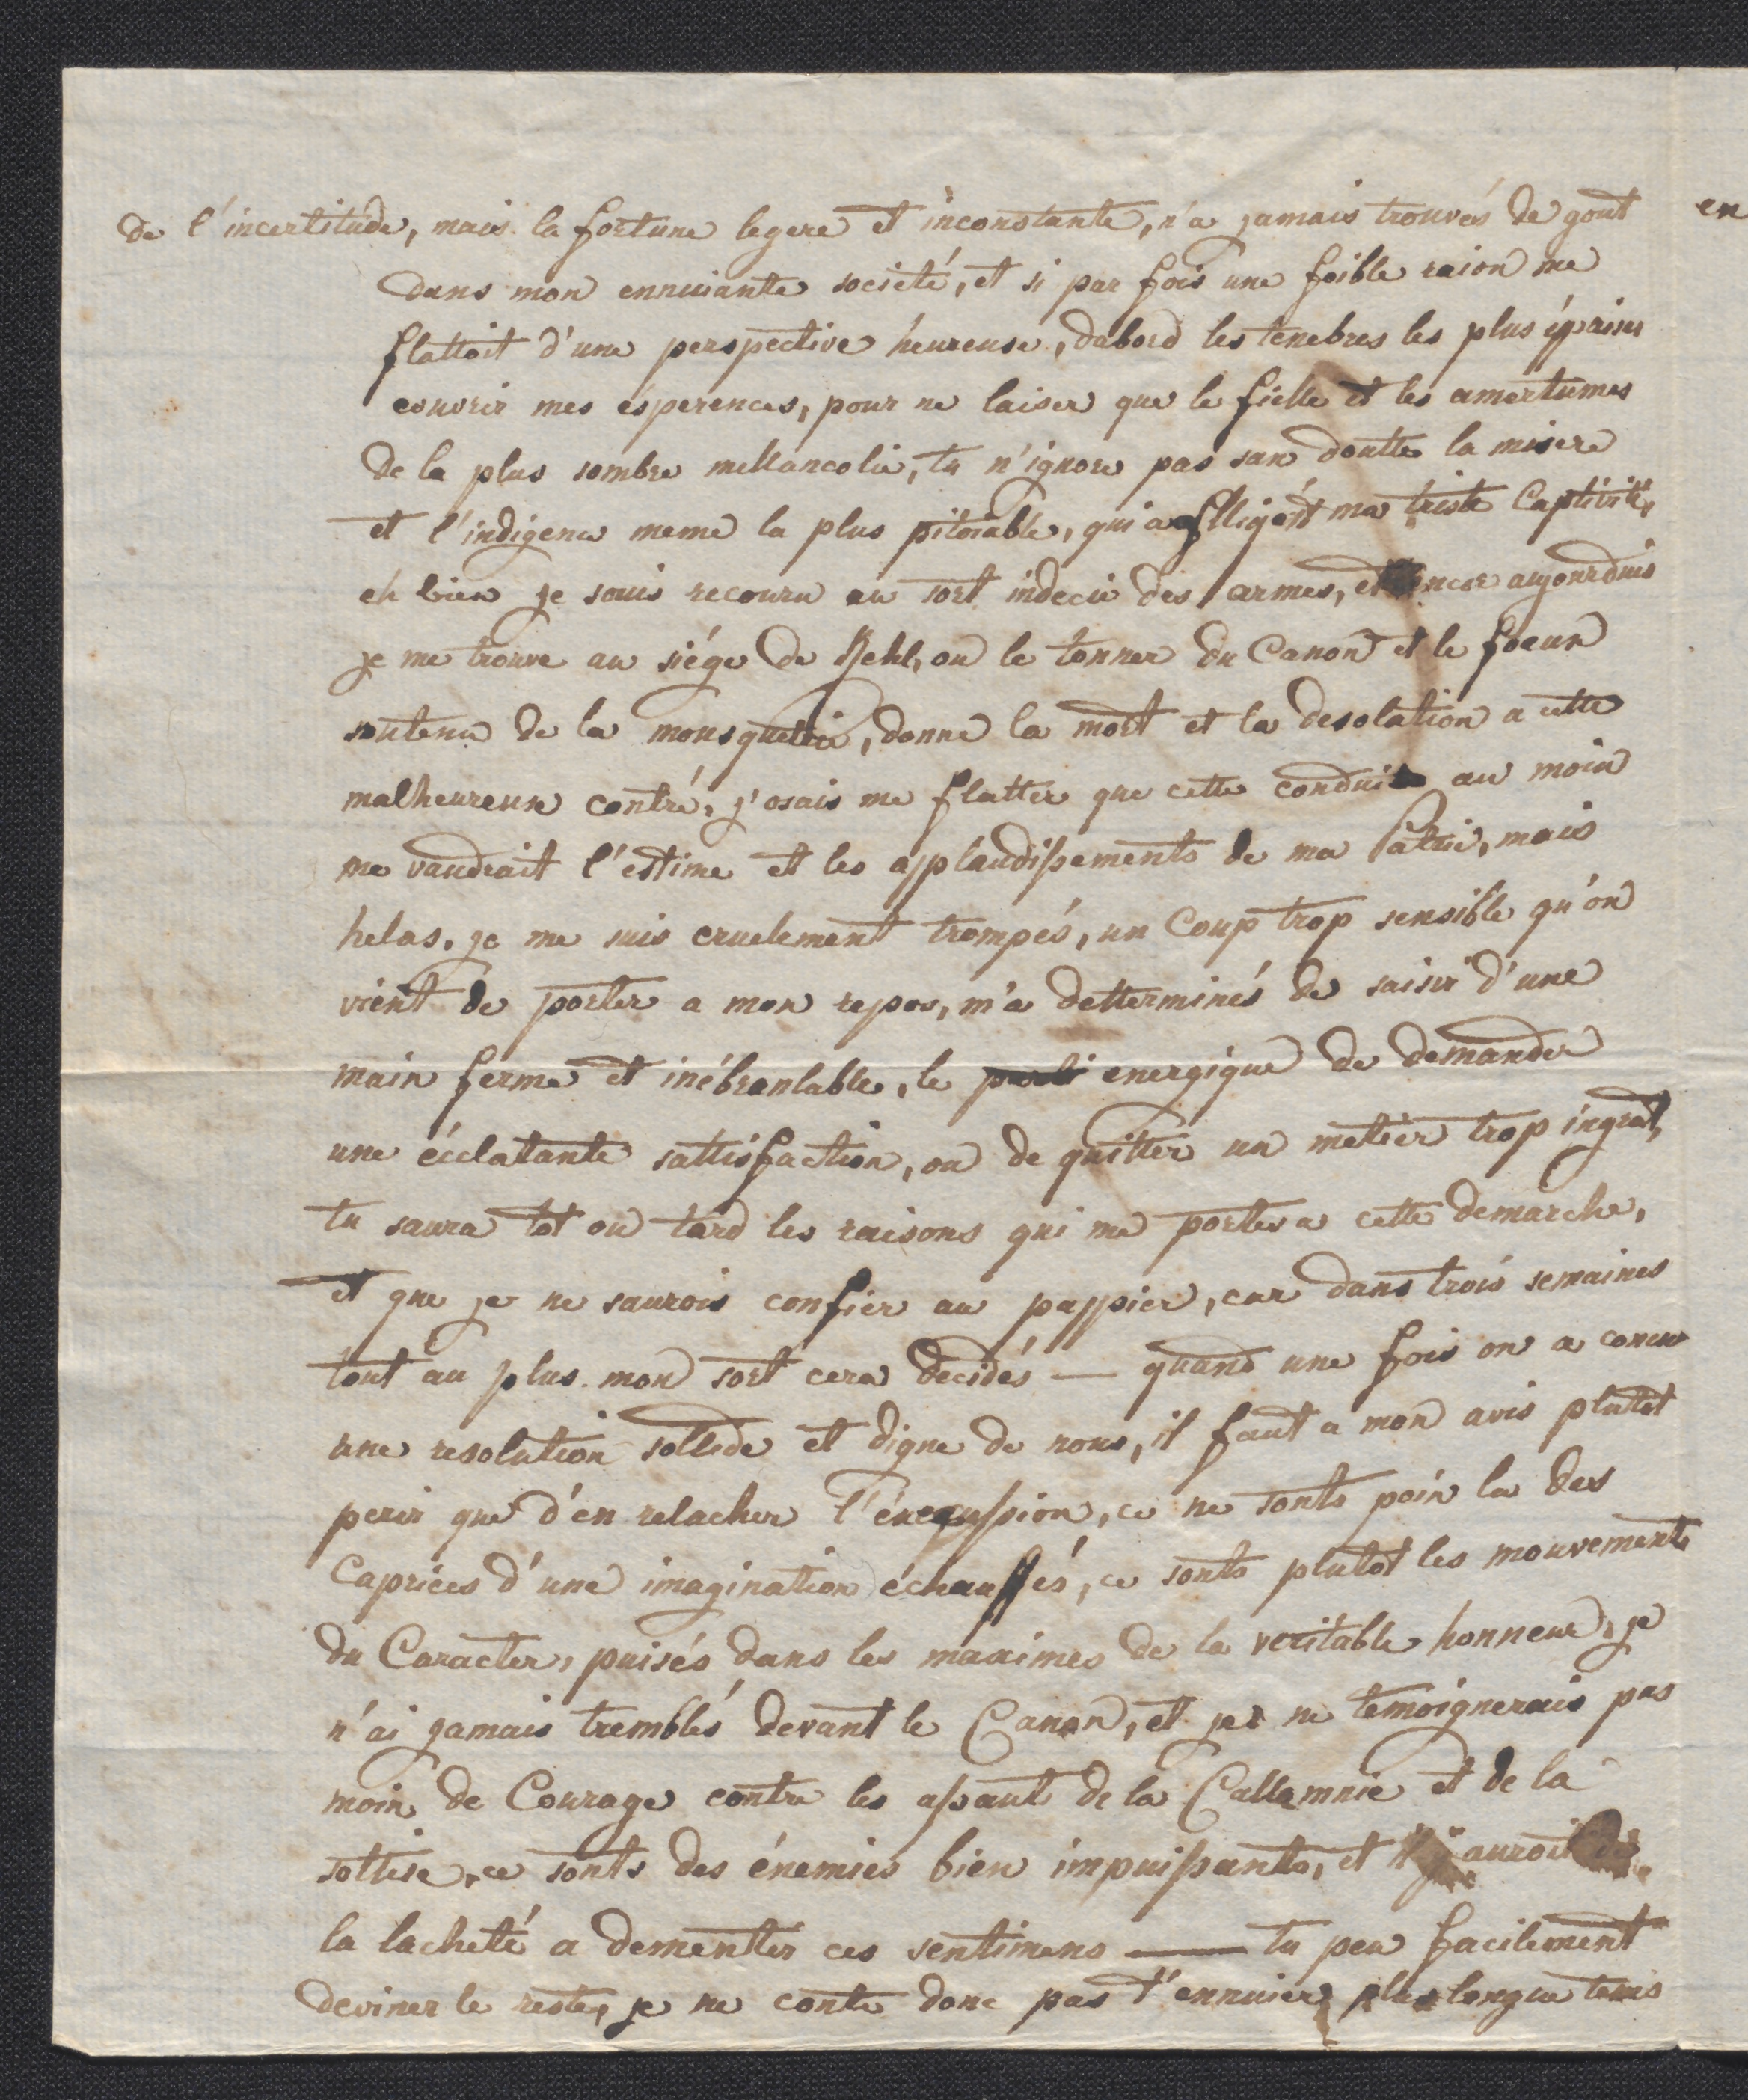 de l'incertitude, mais la fortune legere et inconstante, n'a jamais trouvés de gout
dans mon ennuiante societé, et si par fois une foible raion me
flattoit d'une perspective heureuse, dabord les tenebres les plus épaises
couvrir mes esperences, pour ne laiser que le fielle et les amertumes
de la plus sombre mellancolie, tu n'ignore pas san doutte la misere
et l'indigence meme la plus pitoiable, qui affligeoit ma triste Captivité,
eh bien je souis recouru au sort indecis des armes, et encor aujourduis
je me trouve au siége de Kehl, ou le tonner du Canon et le foeux
soutenu de la mousquetterie, donne la mort et la desolation a cette
malheureux contré, j'osais me flatter que cette conduite au moin
me vaudrait l'estime et les applaudissements de ma Patrie, mais
helas, je me suis cruelement trompés, un Coup trop sensible qu'on
vient de porter a mon repos, m'a detterminés de saisir d'une
main ferme et inébranlable, le parti energique de demander
une écclatante sattisfaction, ou de quitter un metier trop ingrat,
tu saura tot ou tard les raisons qui me portes a cette demarche,
et que je ne saurois confier au pappier, car dans trois semaines
tout au plus mon sort cera decidés — quand une fois on a concu
une resolution sollide et digne de nous, il faut a mon avis plutot
perir que d'en relacher l'éxecussion, ce ne sonts poin la des
Caprices d'une imagination échauffés, ce sonts plutot les mouvements
du Caracter, puisés dans les maximes de la veritable honneur, je
n'ai jamais tremblés devant le Canon, et je ne temoignerais pas
moin de Courage contre les assaut de la Callomnie et de la
sottise, ce sonts des énemies bien impuissants, et il y auroit de
la lacheté a dementir ces sentimens — tu peu facilement
deviner le reste, je ne conte donc pas t'ennuier plus longue tems
en